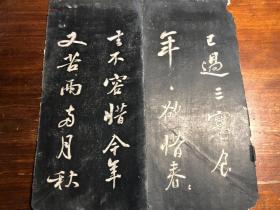 已過三寒食
年〻欲惜春〻
去不容惜今年
又苦雨兩月秋